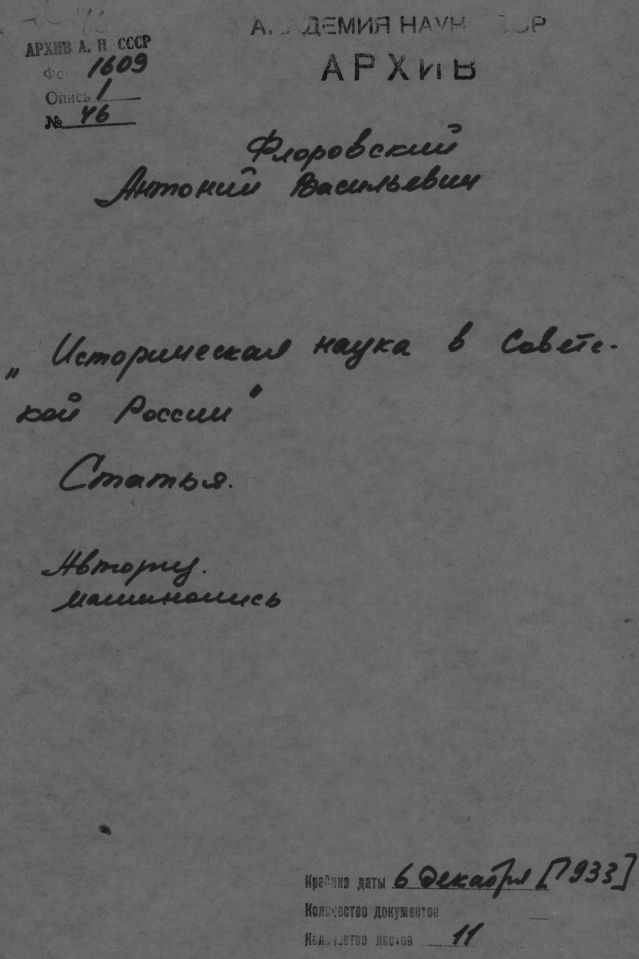 АКАДЕМИЯ НАУК СССР
АРХИВ
АРХИВ А. Н. СССР
Фонд 1609
Опись 1
№ 46
Флоровский
Антоний Васильевич
„Историческая наука в Советс-
кой России"
Статья.
Авториз.
машинопись
Крайние даты 6 декабря [1933]
Количество документов
Количество листов 11